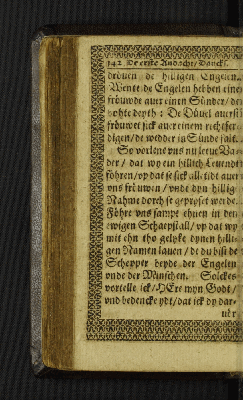 142 De erste Andacht/ Danck
dröuen de hilligen Engelen.
Wente de Engelen hebben eine
fröuwde auer einen Sünder/ de
bohte deyth: De Düuel auerst
fröuwet sick auer einem rechtfer
digen/ de wedder in Sünde falt.
So vorlene vns nu leeue Va
der/ dat wy ein hillich Leuendt
föhren/ vp dat se sick alle tidt auer
vns fröuwen/ vnde dyn hillig
Nahme dorch se gepryset werde.
Föhre vns sampt ehnen in den
ewigen Schaepstall/ vp dat wy
mit ehn tho gelyke dynen hilli-
gen Namen lauen/ de du bist de
Schepper beyde der Engelen
vnde der Minschen. Solckes
vortelle ick/ HEre myn Godt/
vnd bedencke ydt/ dat ick dy dar-